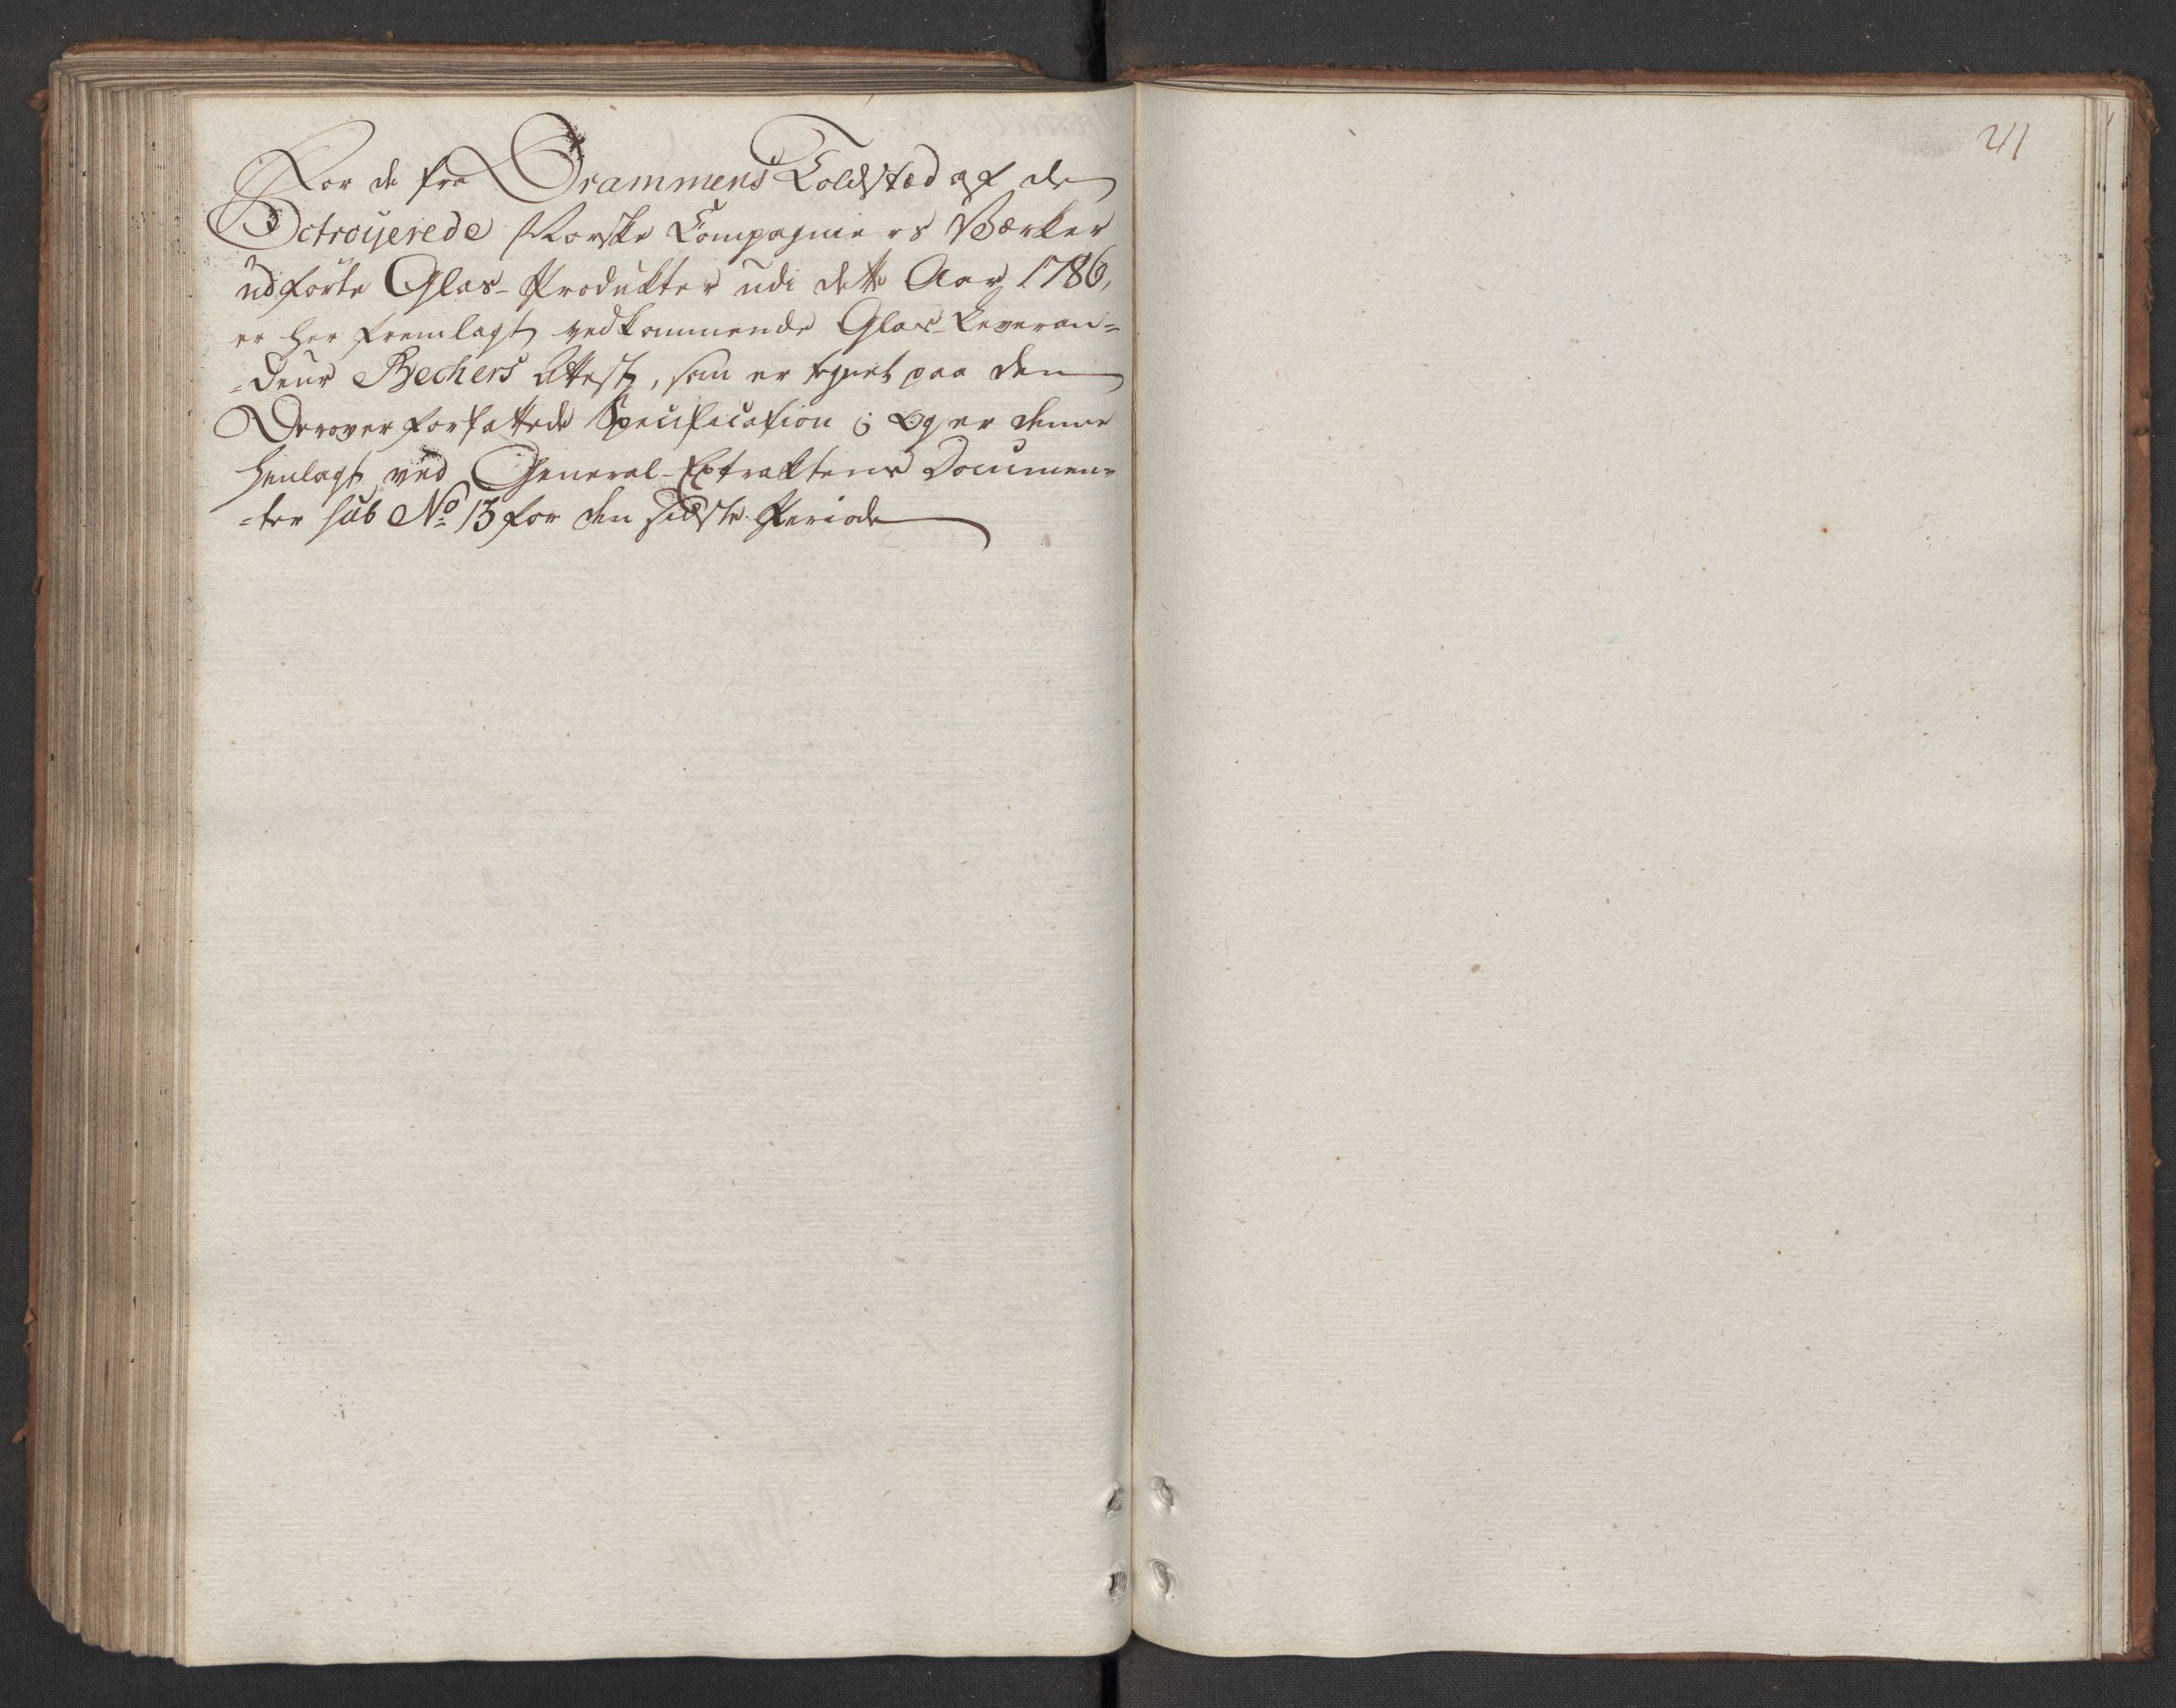 For de fra Drammens Toldsted af de
Octroijerede Norske Compagniers Værker
udførte Glas-Produkter udi dette Aar 1786,
er her fremlagt vedkommende Glas-Leveran=
=deur Bechers Attest, som er tegnet paa den
Derover forfattede Specification; og er denne
henlagt ved General-Extraktens Documen=
=ter sub No 13 for den sidste Periode
241